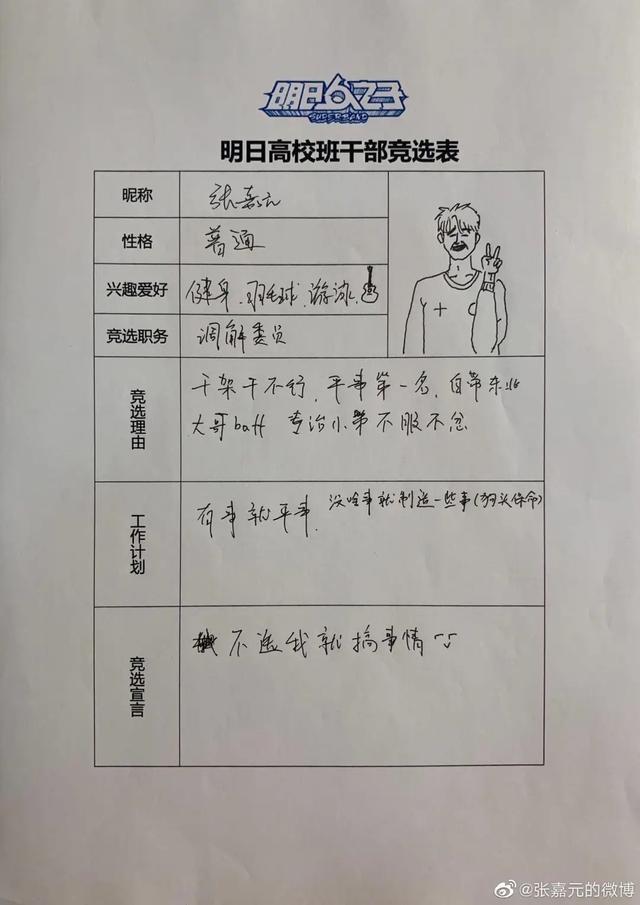 明日之子
SUPERBAND
明日高校班干部竞选表
昵称 张嘉元
性格 普通
兴趣爱好 健身、羽毛球、游泳、
竞选职务 调解委员
竞选理由 干架干不行，平事第一名，自带东北
大哥buff 专治小弟不服不忿
工作计划 有事就平事，没啥事就制造一些事(狗头保命)
竞选宣言 不选我就搞事情
@张嘉元的微博